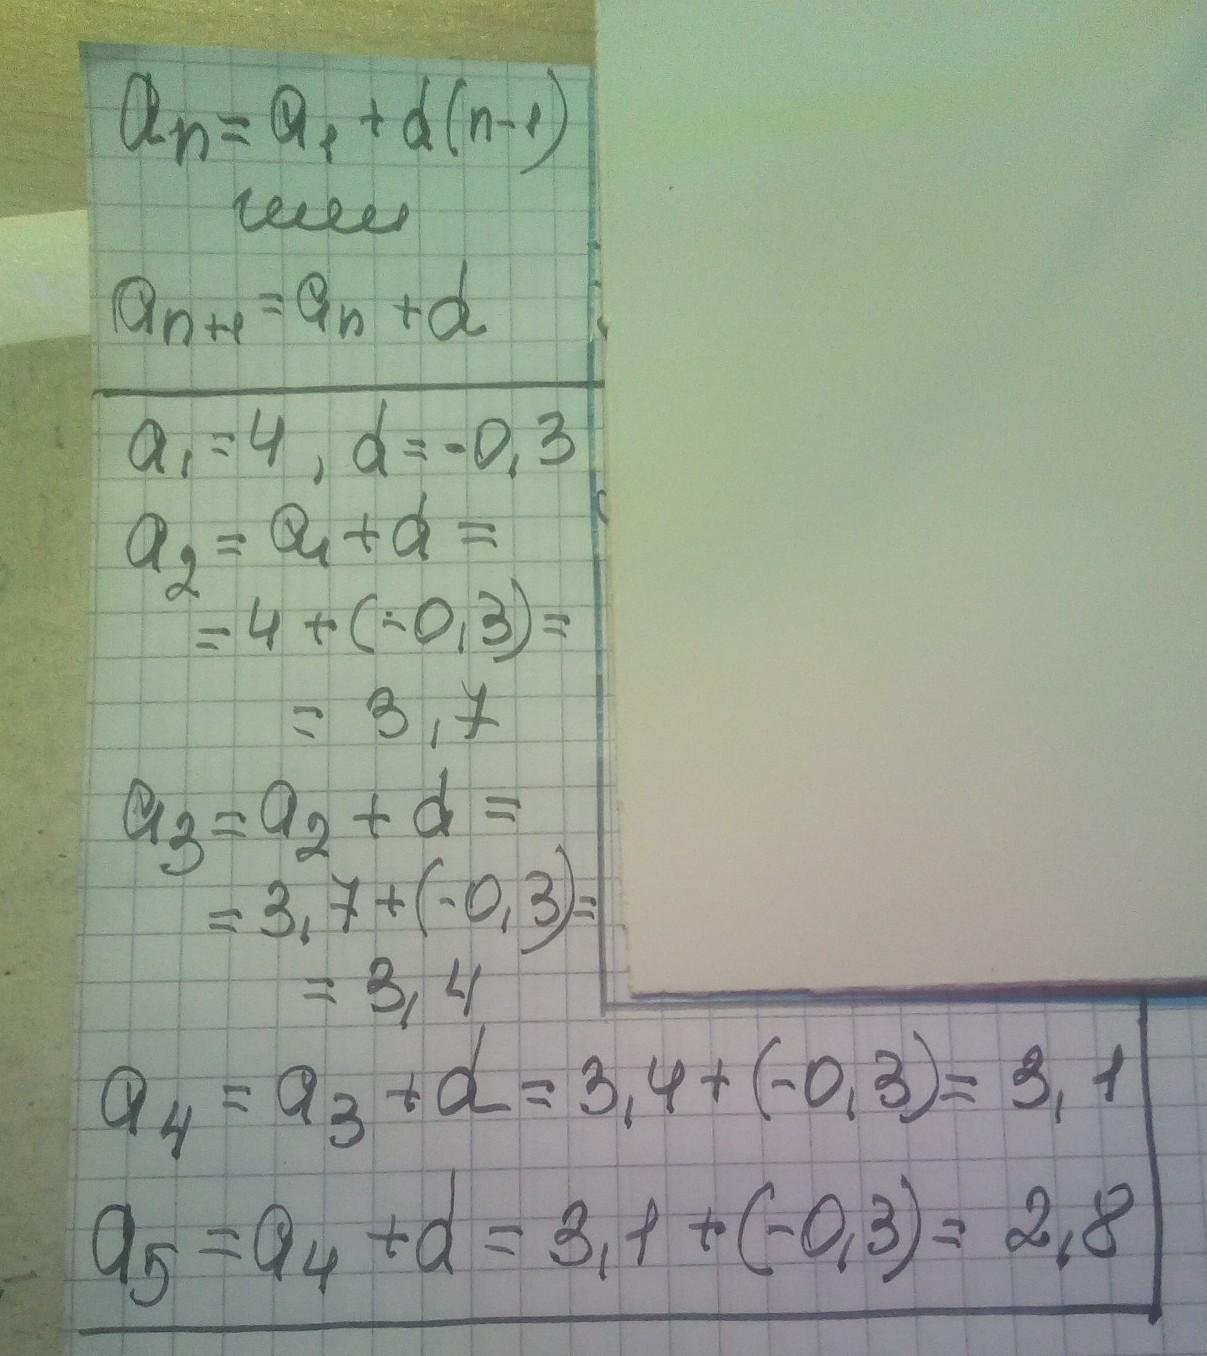 aₙ = a₁ + d(n-1)
или
aₙ₊₁ = aₙ + d
a₁ = 4, d = -0,3
a₂ = a₁ + d =
= 4 + (-0,3) =
= 3,7
a₃ = a₂ + d =
= 3,7 + (-0,3) =
= 3,4
a₄ = a₃ + d = 3,4 + (-0,3) = 3,1
a₅ = a₄ + d = 3,1 + (-0,3) = 2,8